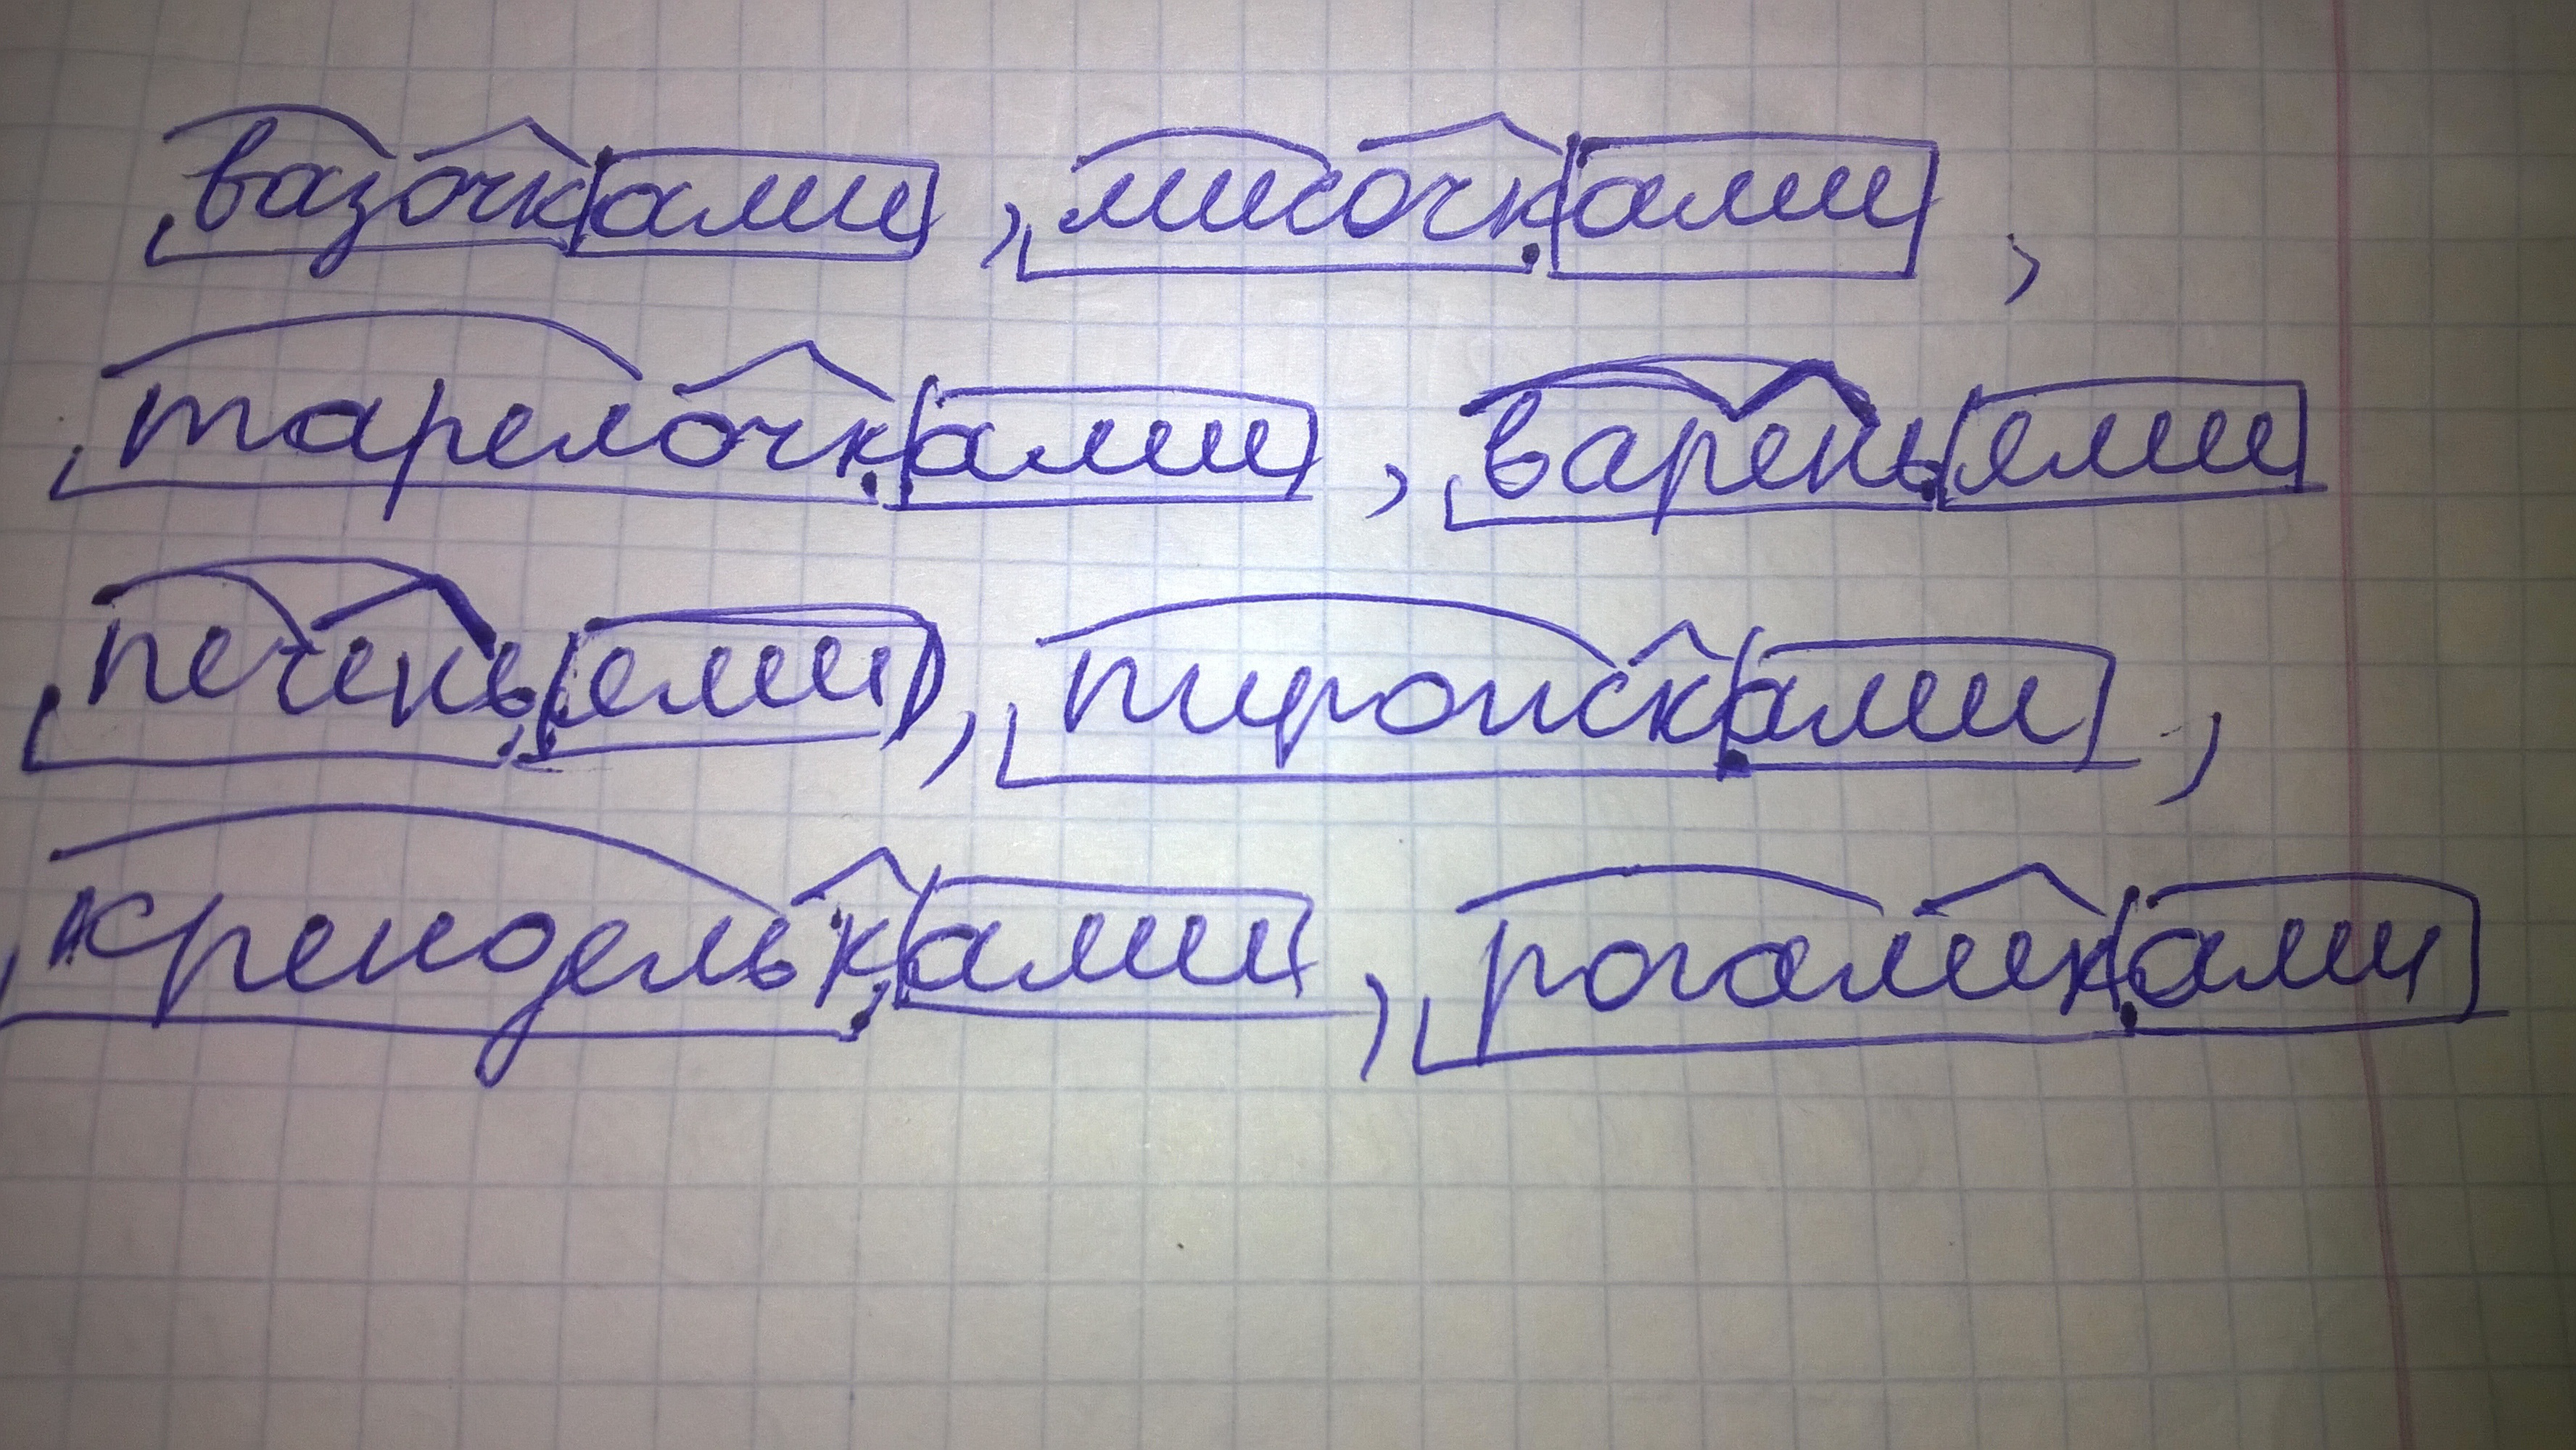 вазочками, мисочками,
тарелочками, вареньями
печеньями, пирожками,
крендельками, рогаликами